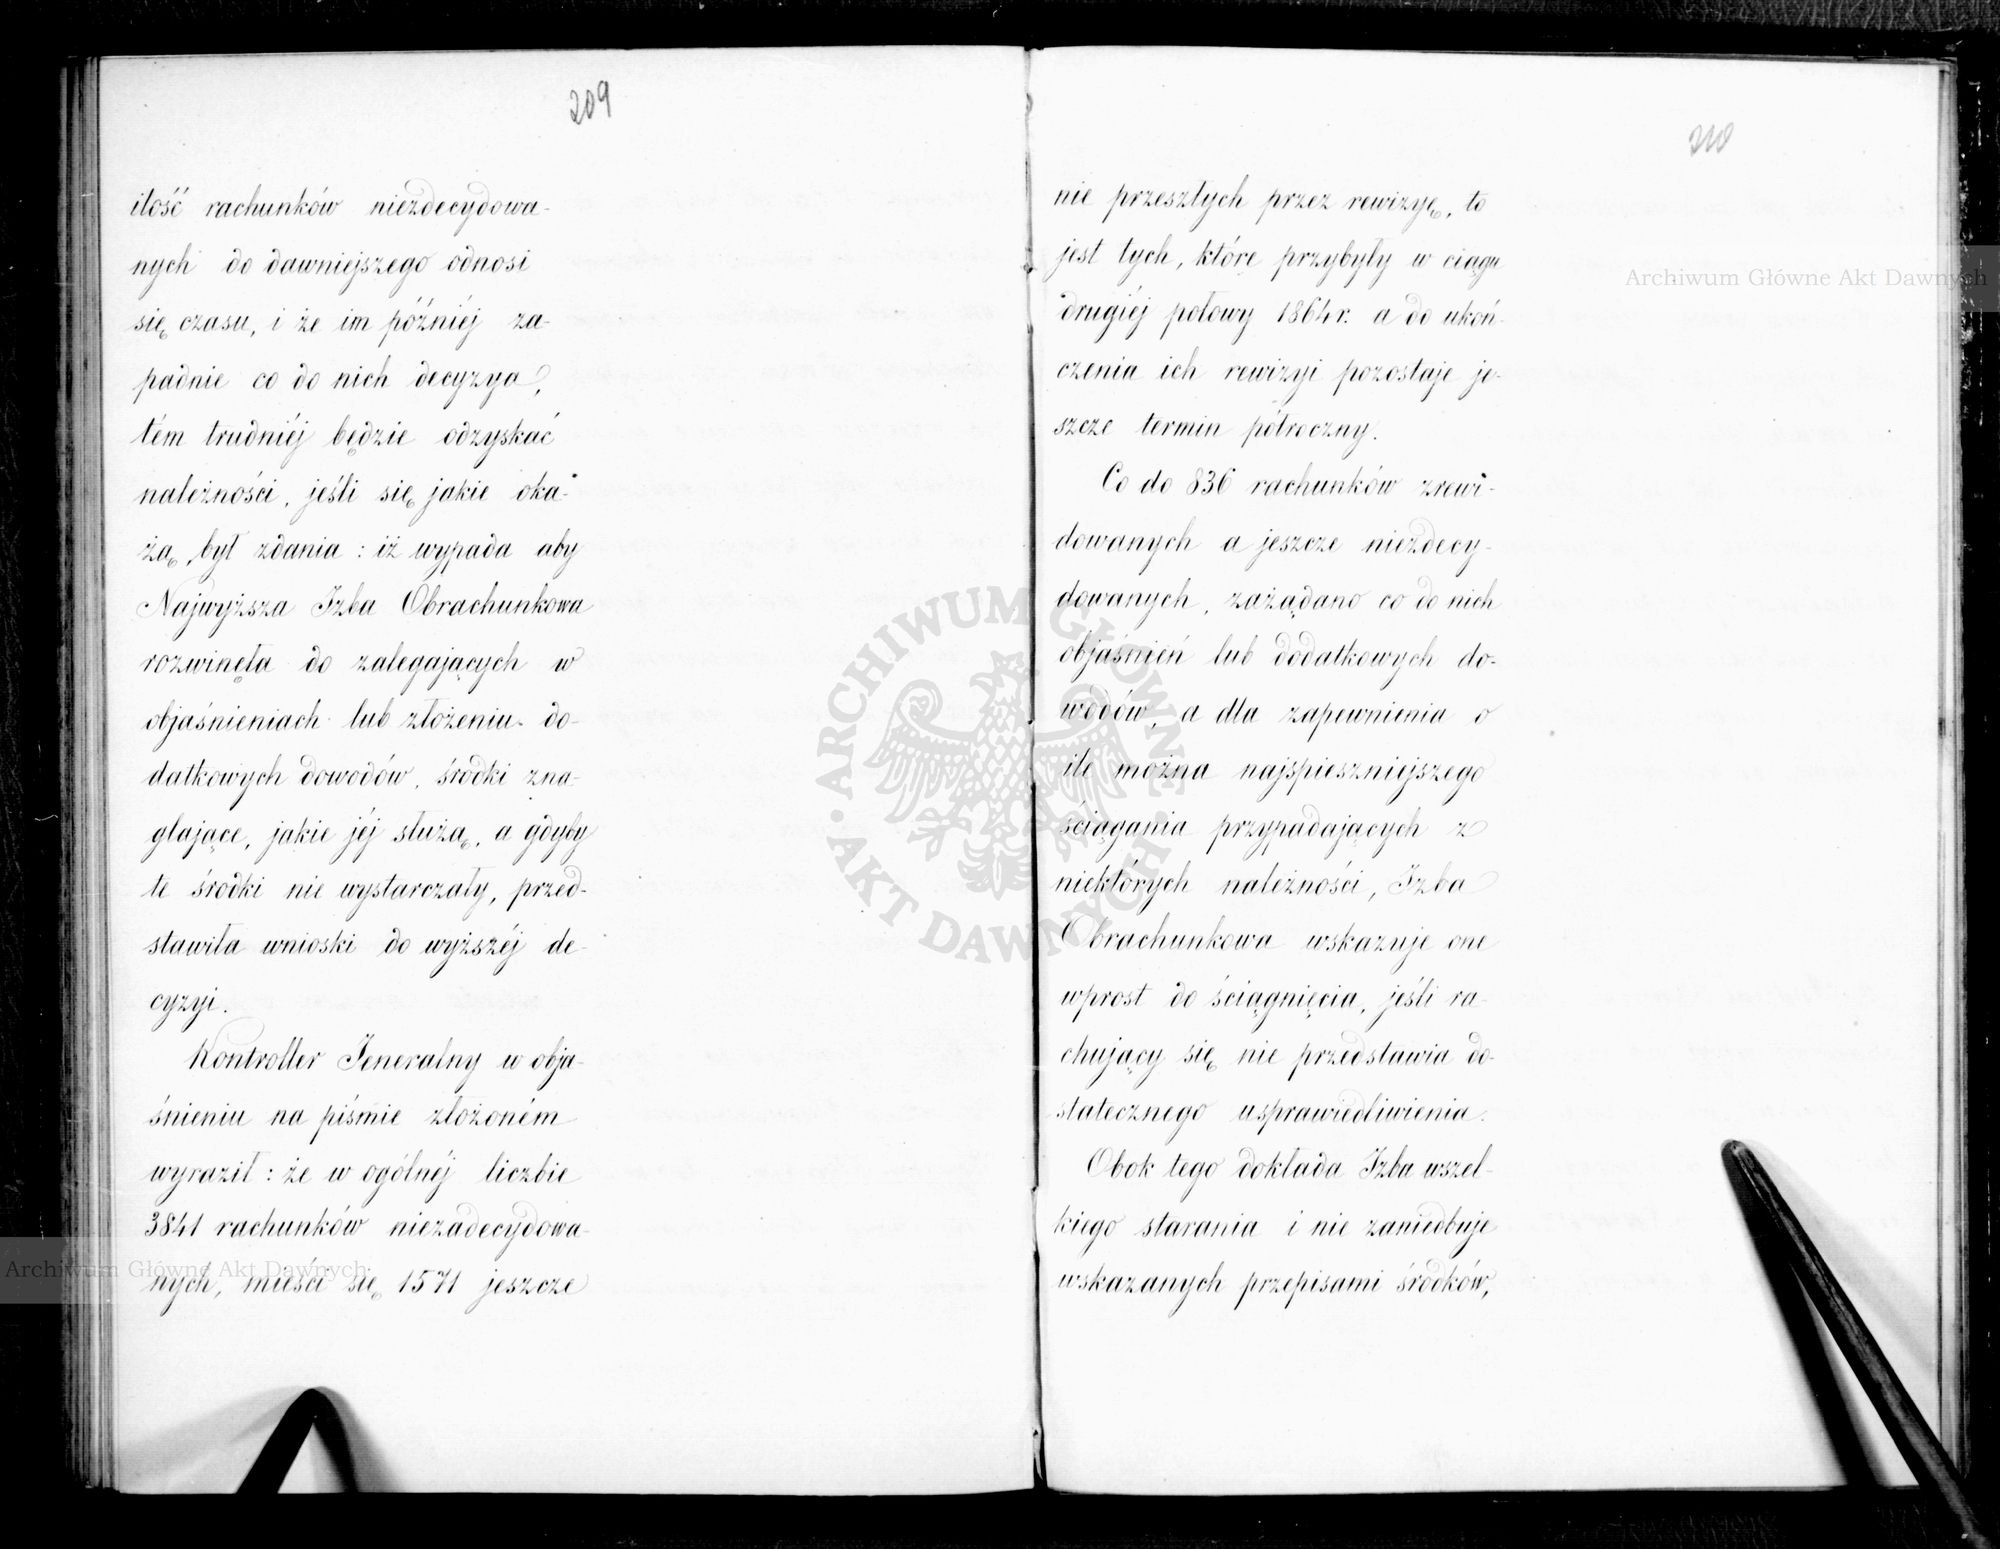 209
ilość rachunków niezdecydowa-
nych do dawniejszego odnosi
się czasu, i że im późniéj za-
padnie co do nich decyzya,
tém trudniéj będzie odzyskać
należności, jeśli się jakie oka-
żą, był zdania: iż wypada aby
Najwyższa Izba Obrachunkowa
rozwinęła do zalegających w
objaśnieniach lub złożeniu do-
datkowych dowodów, środki zna-
glające, jakie jéj służą, a gdyby
te środki nie wystarczały, przed-
stawiła wnioski do wyższéj de-
cyzyi.
Kontroller Jeneralny w obja-
śnieniu na piśmie złożoném
wyraził: że w ogólnéj liczbie
3841 rachunków niezadecydowa-
nych, mieści się 1571 jeszcze
210
nie przeszłych przez rewizyę, to
jest tych, które przybyły w ciągu
drugiéj połowy 1864 r. a do ukoń-
czenia ich rewizyi pozostaje je-
szcze termin półroczny.
Co do 836 rachunków zrewi-
dowanych a jeszcze niezdecy-
dowanych, zażądano co do nich
objaśnień lub dodatkowych do-
wodów, a dla zapewnienia o
ile można najspieszniejszego
ściągania przypadających z
niektórych należności, Izba
Obrachunkowa wskazuje one
wprost do ściągnięcia, jeśli ra-
chujący się nie przedstawia do-
statecznego usprawiedliwienia.
Obok tego dokłada Izba wszel-
kiego starania i nie zaniedbuje
wskazanych przepisami środków,
Archiwum Główne Akt Dawnych
Archiwum Główne Akt Dawnych
ARCHIWUM GŁÓWNE AKT DAWNYCH